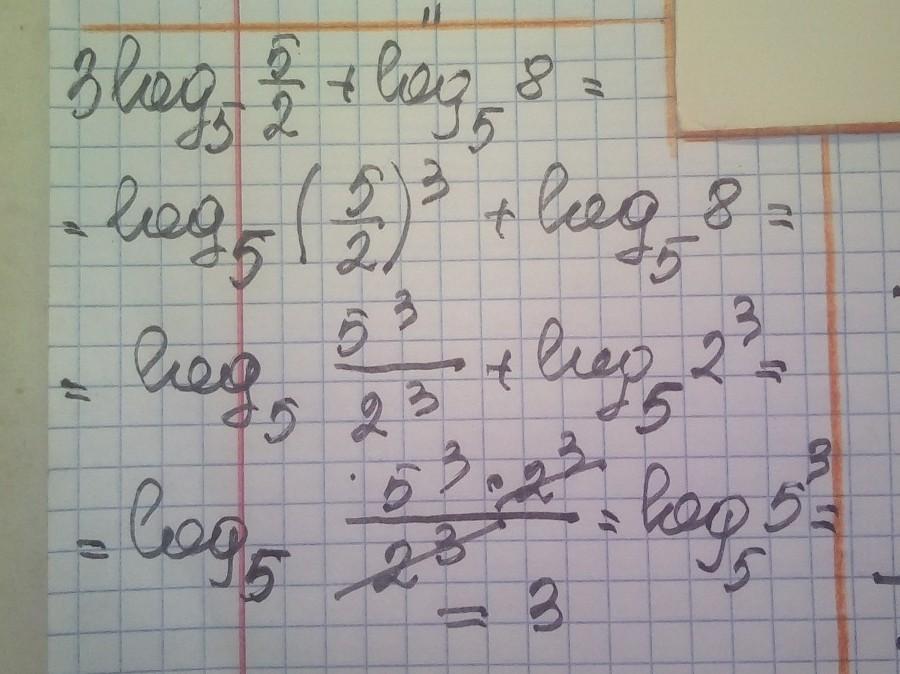 3log₅ 5/2 + log₅ 8 =
= log₅ (5/2)³ + log₅ 8 =
= log₅ 5³/2³ + log₅ 2³ =
= log₅ 5³·2³/2³ = log₅ 5³ =
= 3